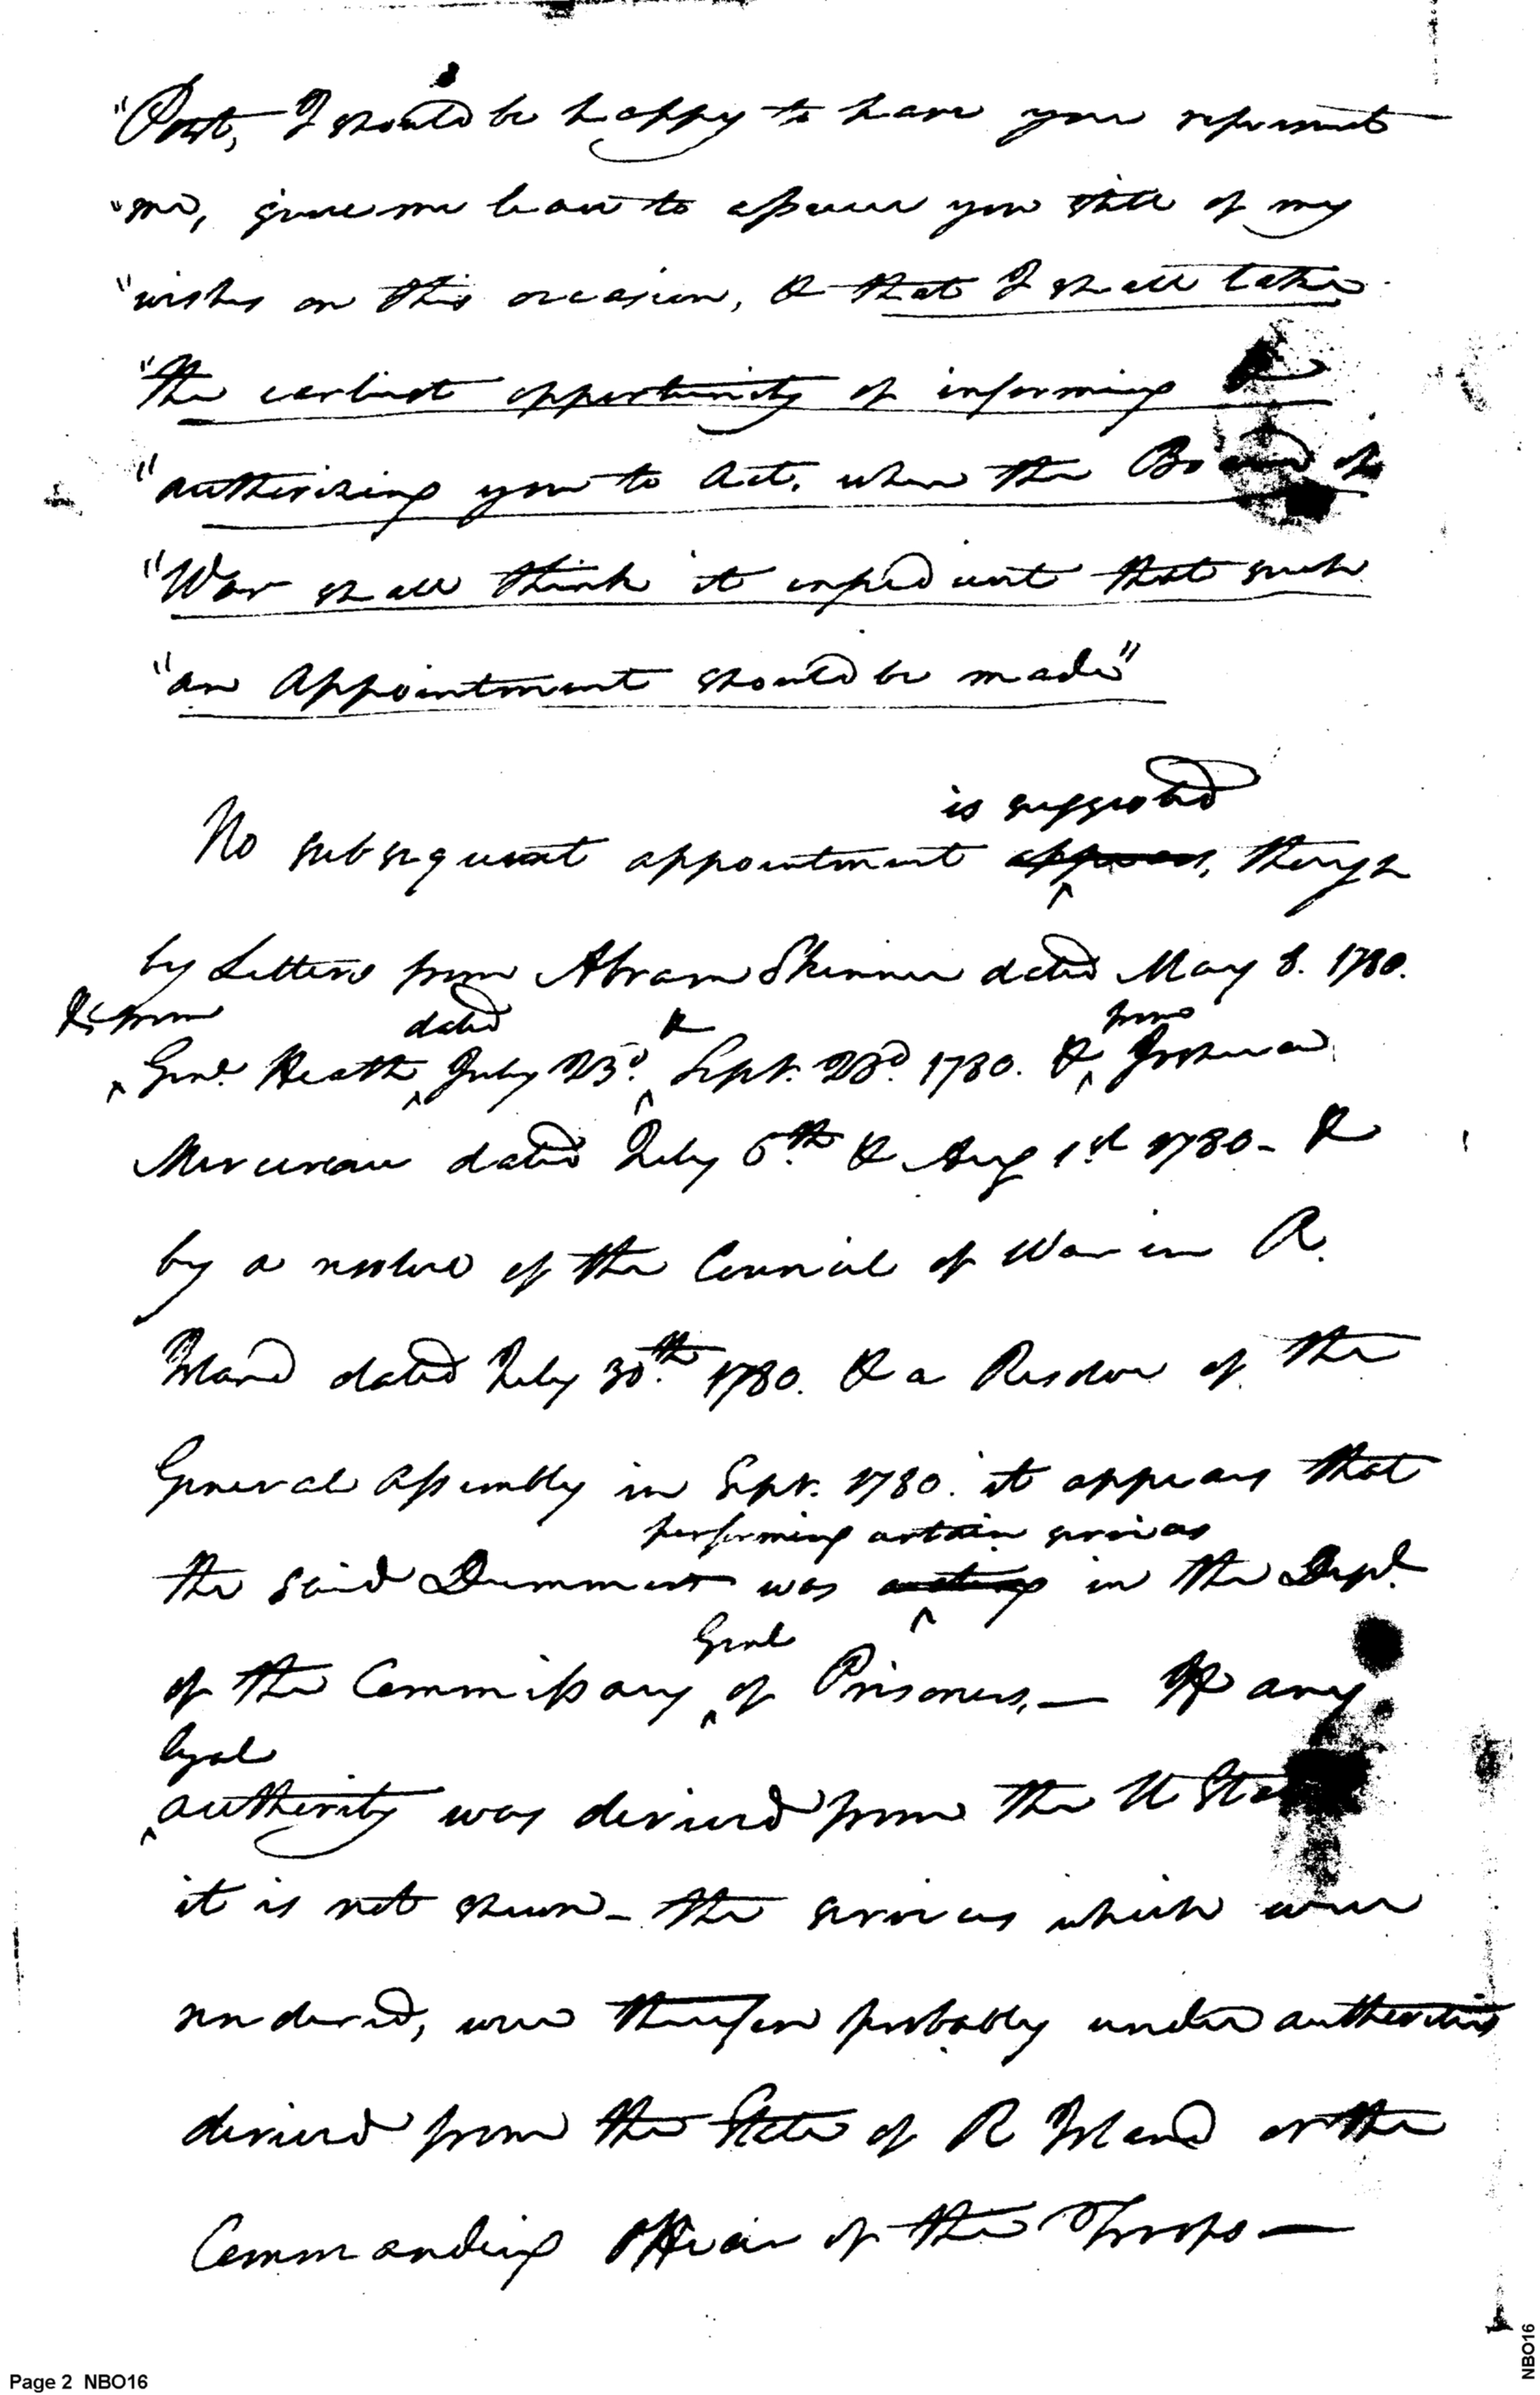 "Post, I should be happy to have you represent
"me, give me leave to assure you still of my
"wishes on this occasion, & that I shall take
"the earliest opportunity of informing &
"authorizing you to act, when the Board of
"War shall think it expedient that such
"an Appointment should be made"
is suggested
No subsequent appointment appears, though
by Letters from Abram Skinner dated May 8. 1780.
& from dated & from
Genl. Heath July 23d. Sept. 23d 1780. & Joshua
Mercereau dated July 6th & Aug 1st 1780 - &
by a resolve of the Council of War in R.
Island dated July 30th 1780. & a Resolve of the
General Assembly in Sept. 1780. it appears that
performing certain services
the said was acting in the Dept.
Genl
of the Commissary of Prisoners, — If any
legal
authority was derived from the U States
it is not shewn - the services which were
rendered, were therefore probably under authorities
derived from the State of R Island or the
Commanding Officer of the Troops —
Page 2 NBO16
NBO16